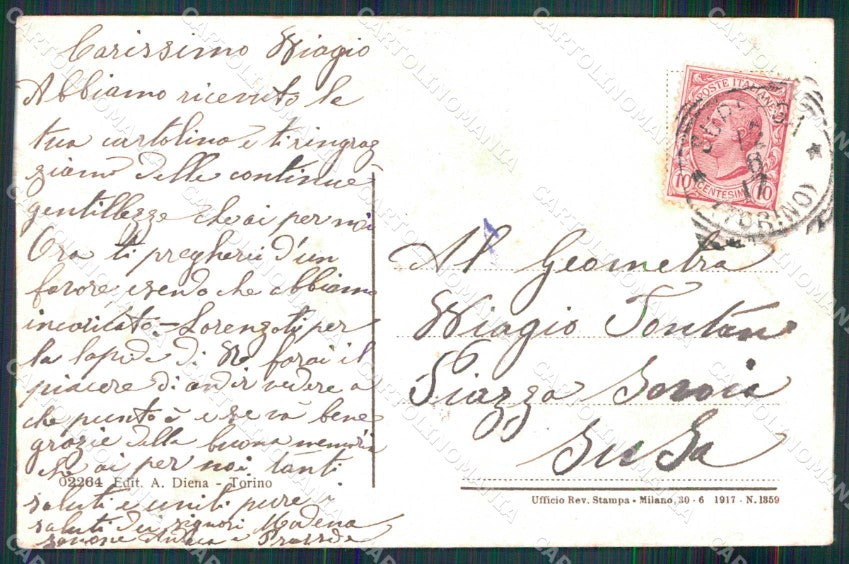 Carissimo Wiagio
Abbiamo ricevuto la
tua cartolina e ti ringraz
ziamo delle continue
gentillezze che ai per noi
Ora ti pregherei d'un
favore esendo che abbiamo
incaricato Lorenzoti per
la lapide di farai il
piacere di andar vedere a
che punto è e se va bene
grazie della buona memoria
che ai per noi tanti
saluti e uniti pure i
saluti dei signori Modena
e
02264 Edit. A. Diena - Torino
POSTE ITALIANE
10 CENTESIMI 10
17
(TORINO)
Al Geometra
Wiagio Fontan
Piazza Savoia
Susa
Ufficio Rev. Stampa - Milano, 30 - 6 1917 - N. 1359
CARTOLINOMANIA